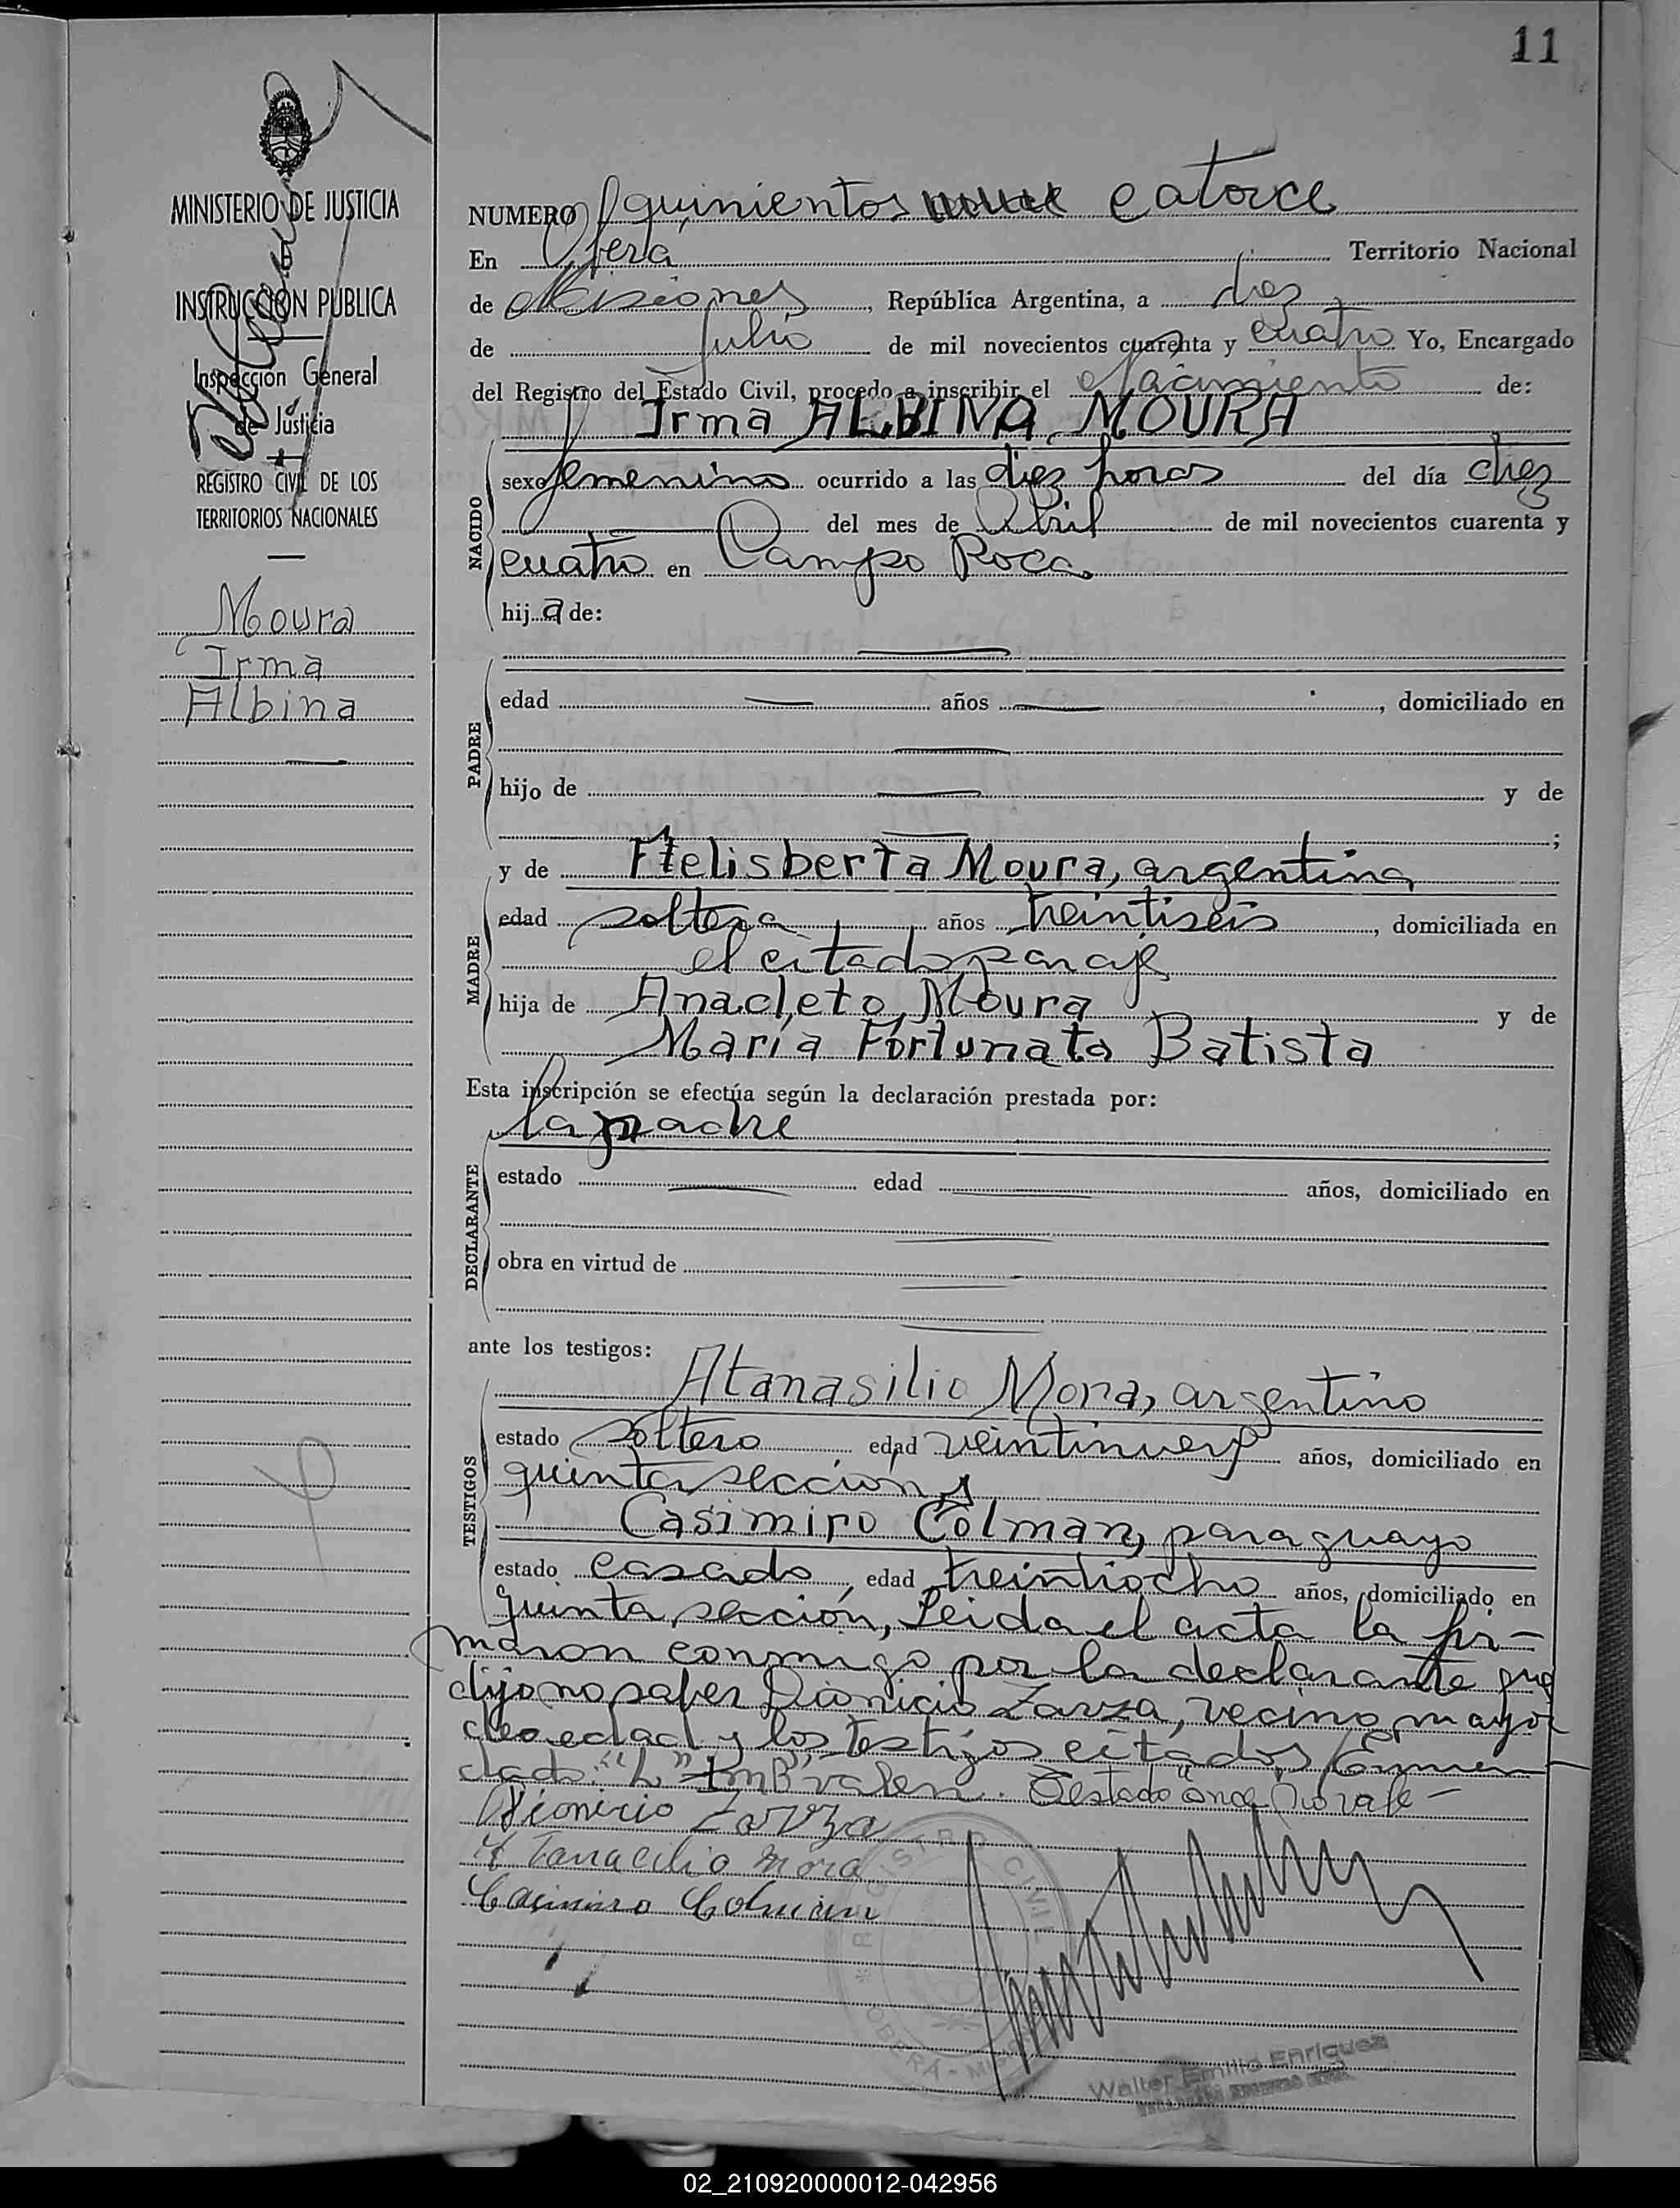 11
MINISTERIO DE JUSTICIA
INSTRUCCION PUBLICA
Inspección General
de Justicia
REGISTRO CIVIL DE LOS
TERRITORIOS NACIONALES
Moura
Irma
Albina
NUMERO quinientos catorce
En Overa Territorio Nacional
de Misiones, República Argentina, a diez
de Julio de mil novecientos cuarenta y cuatro Yo, Encargado
del Registro del Estado Civil, procedo a inscribir el Nacimiento de:
Irma ALBINA MOURA
NACIDO
sexo femenino ocurrido a las diez horas del día diez
del mes de Abril de mil novecientos cuarenta y
cuatro en Campo Roca
hija de:
PADRE
edad años , domiciliado en
hijo de y de
;
y de Helisberta Moura, argentina
MADRE
edad soltera años treintiseis, domiciliada en
el citado paraje
hija de Anacleto Moura y de
María Fortunata Batista
Esta inscripción se efectúa según la declaración prestada por:
la madre
DECLARANTE
estado edad años, domiciliado en
obra en virtud de
ante los testigos:
TESTIGOS
Atanasilio Mora, argentino
estado soltero edad veintinueve años, domiciliado en
quinta sección y
Casimiro Colman, paraguayo
estado casado, edad treintiocho años, domiciliado en
quinta sección, Leida el acta la fir-
maron conmigo por la declarante que
dijo no saber Dionicio Zarza, vecino mayor
de edad y los testigos citados, Enmen
dado: "L" "mB" valen. Testado no vale-
Dionicio Zarza
Atanacilio Mora
Casimiro Colman
REGISTRO CIVIL
OBERA - MIS
Walter Emilio Enriquez
02_210920000012-042956